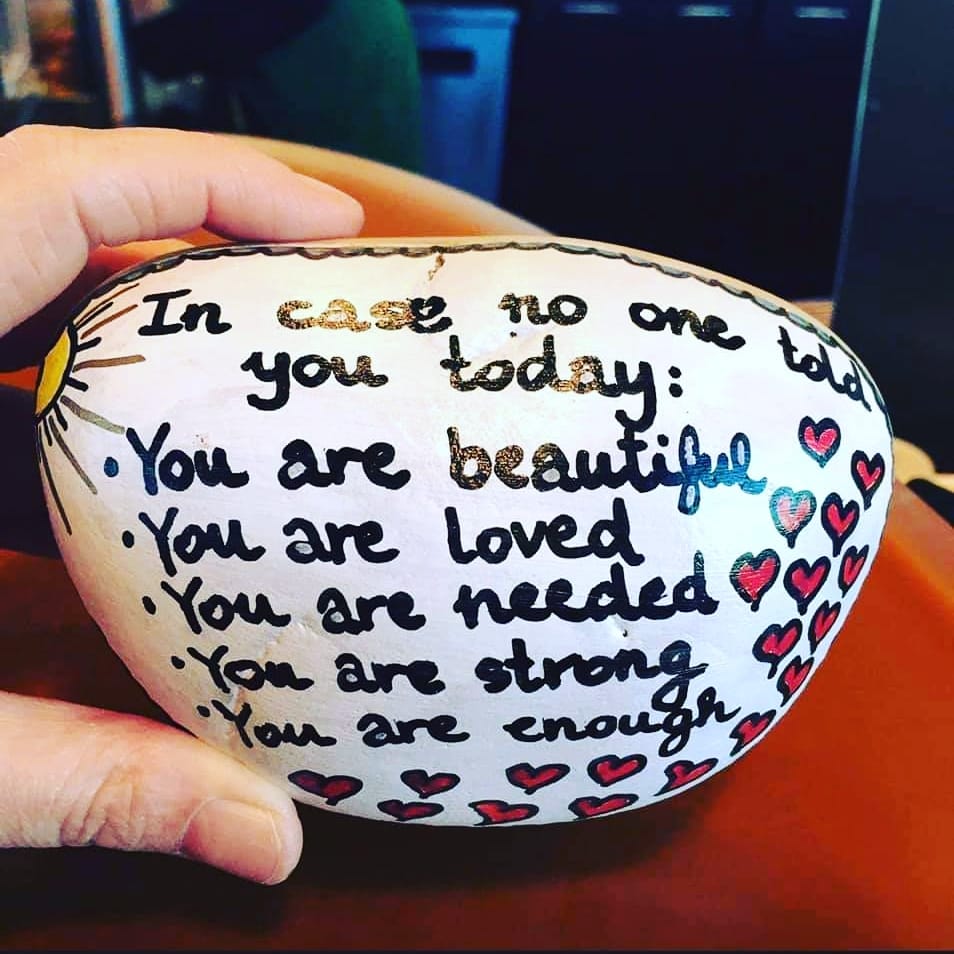 In case no one told
you today:
• You are beautiful
• You are loved
• You are needed
• You are strong
• You are enough